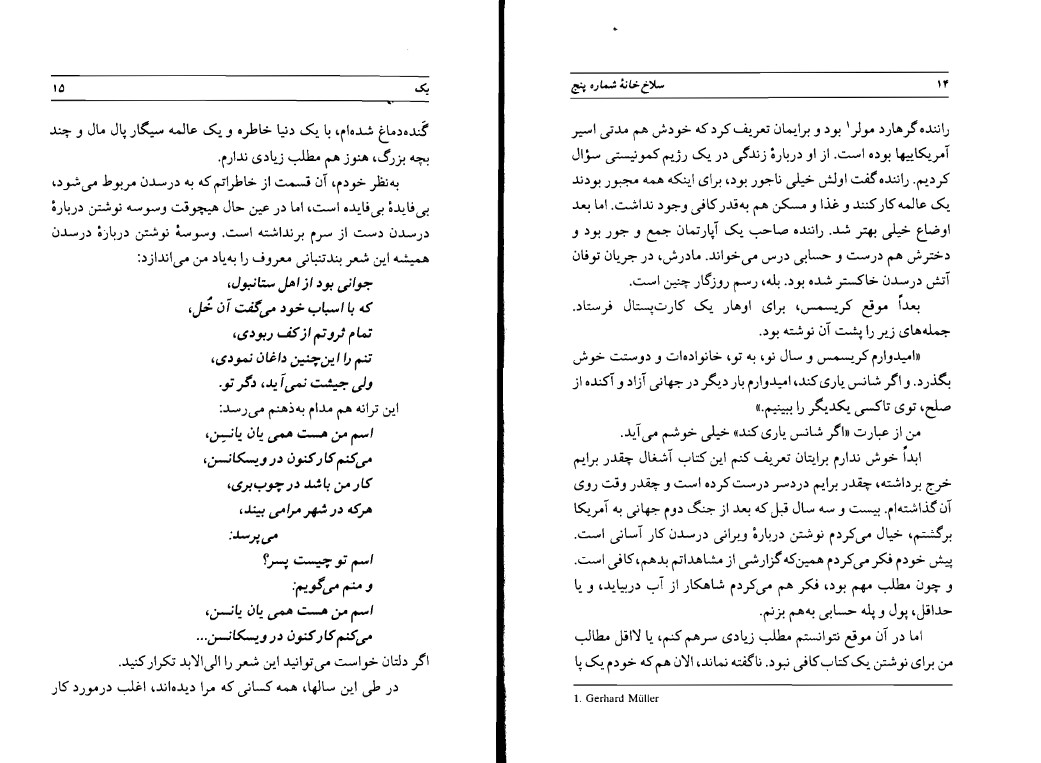 ۱۴ سلاخ‌خانهٔ شماره پنج
راننده گرهارد مولر۱ بود و برایمان تعریف کرد که خودش هم مدتی اسیر
آمریکاییها بوده است. از او دربارهٔ زندگی در یک رژیم کمونیستی سؤال
کردیم. راننده گفت اولش خیلی ناجور بود، برای اینکه همه مجبور بودند
یک عالمه کار کنند و غذا و مسکن هم به‌قدر کافی وجود نداشت. اما بعد
اوضاع خیلی بهتر شد. راننده صاحب یک آپارتمان جمع و جور بود و
دخترش هم درست و حسابی درس می‌خواند. مادرش، در جریان توفان
آتش درسدن خاکستر شده بود. بله، رسم روزگار چنین است.
بعداً موقع کریسمس، برای اوهار یک کارت‌پستال فرستاد.
جمله‌های زیر را پشت آن نوشته بود.
«امیدوارم کریسمس و سال نو، به تو، خانواده‌ات و دوستت خوش
بگذرد. و اگر شانس یاری کند، امیدوارم بار دیگر در جهانی آزاد و آکنده از
صلح، توی تاکسی یکدیگر را ببینیم.»
من از عبارت «اگر شانس یاری کند» خیلی خوشم می‌آید.
ابداً خوش ندارم برایتان تعریف کنم این کتاب آشغال چقدر برایم
خرج برداشته، چقدر برایم دردسر درست کرده است و چقدر وقت روی
آن گذاشته‌ام. بیست و سه سال قبل که بعد از جنگ دوم جهانی به آمریکا
برگشتم، خیال می‌کردم نوشتن دربارهٔ ویرانی درسدن کار آسانی است.
پیش خودم فکر می‌کردم همین‌که گزارشی از مشاهداتم بدهم، کافی است.
و چون مطلب مهم بود، فکر هم می‌کردم شاهکار از آب دربیاید، و یا
حداقل، پول و پله حسابی به‌هم بزنم.
اما در آن موقع نتوانستم مطلب زیادی سرهم کنم، یا لااقل مطالب
من برای نوشتن یک کتاب کافی نبود. ناگفته نماند، الان هم که خودم یک پا
1. Gerhard Müller
یک ۱۵
گَنده‌دماغ شده‌ام، با یک دنیا خاطره و یک عالمه سیگار پال مال و چند
بچه بزرگ، هنوز هم مطلب زیادی ندارم.
به‌نظر خودم، آن قسمت از خاطراتم که به درسدن مربوط می‌شود،
بی‌فایدهٔ بی‌فایده است، اما در عین حال هیچوقت وسوسه نوشتن دربارهٔ
درسدن دست از سرم برنداشته است. وسوسهٔ نوشتن دربارهٔ درسدن
همیشه این شعر بندتنبانی معروف را به‌یاد من می‌اندازد:
جوانی بود از اهل ستانبول،
که با اسباب خود می‌گفت آن خُل،
تمام ثروتم از کف ربودی،
تنم را این‌چنین داغان نمودی،
ولی جیشت نمی‌آید، دگر تو.
این ترانه هم مدام به‌ذهنم می‌رسد:
اسم من هست همی یان یانسِن،
می‌کنم کار کنون در ویسکانسن،
کار من باشد در چوب‌بری،
هرکه در شهر مرا می بیند،
می‌پرسد:
اسم تو چیست پسر؟
و منم می‌گویم:
اسم من هست همی یان یانسن،
می‌کنم کار کنون در ویسکانسن...
اگر دلتان خواست می‌توانید این شعر را الی‌الابد تکرار کنید.
در طی این سالها، همه کسانی که مرا دیده‌اند، اغلب درمورد کار